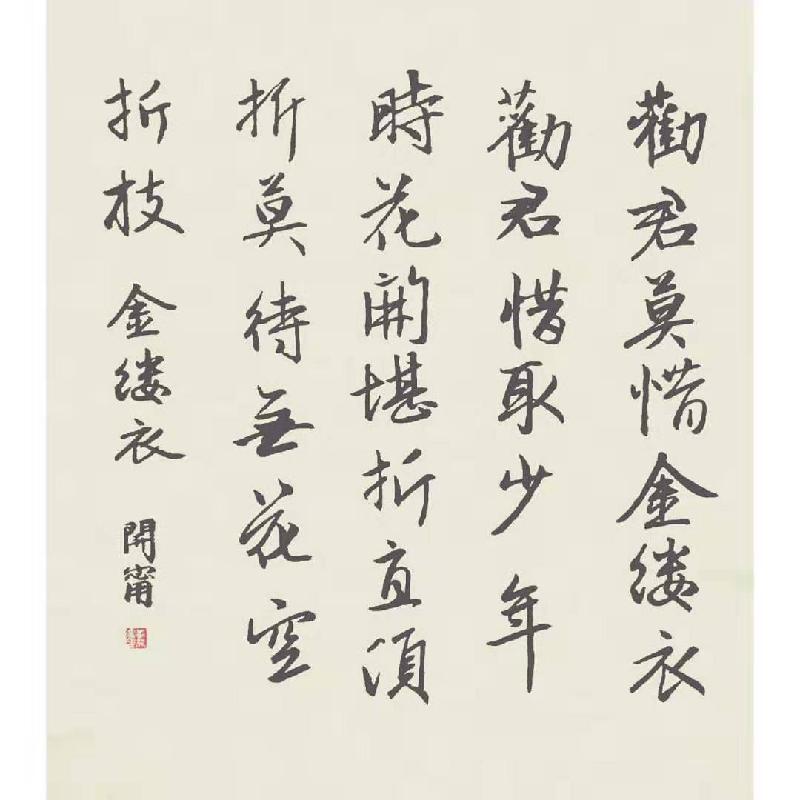 勸君莫惜金缕衣
勸君惜取少年
時花開堪折直須
折莫待無花空
折枝 金缕衣 開甯